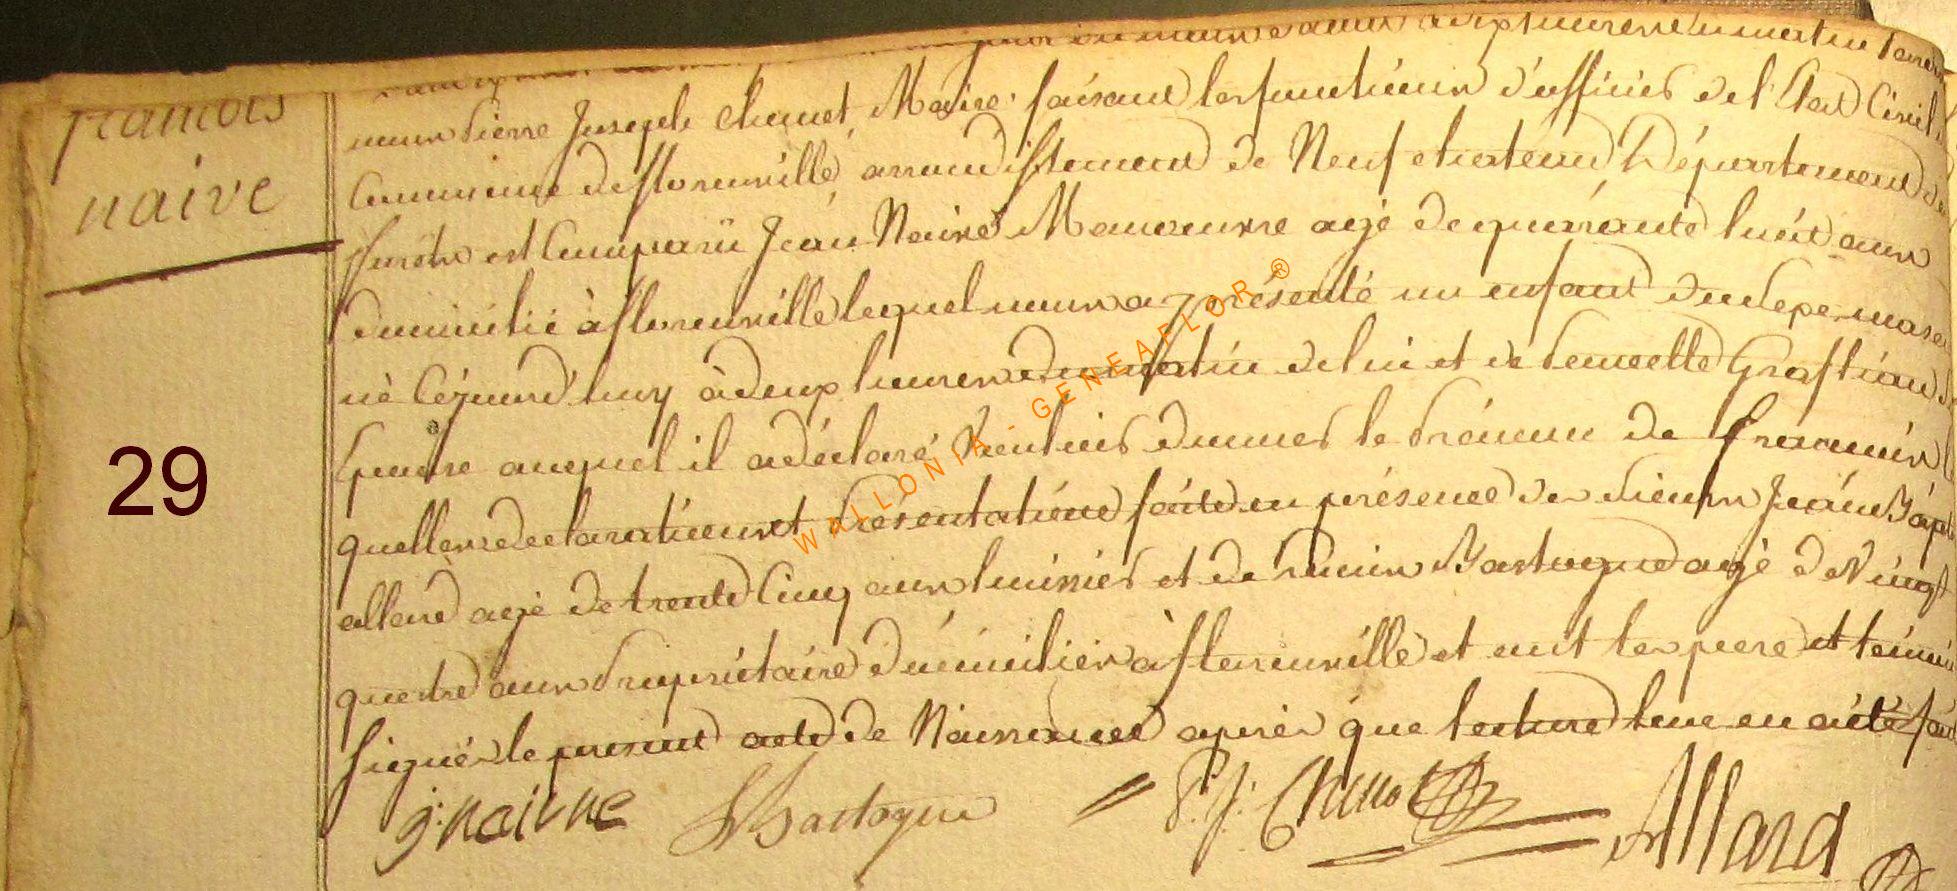 francois
naive
29
neuf heures du matin
nous Pierre Joseph Chenot Maire faisant les fonctions d'officier de l'Etat Civil
Commune de florenville, arrondissement de Neufchateau Département
forêts est Comparu Jean Naive Manoeuvre agé de quarante huit ans
domicilié à florenville lequel nous a présenté un enfant du sexe mas
né Cejourd'huy à deux heures du matin de lui et de
Epouse auquel il a déclaré vouloir donner le prénom de francois
quelles declarations et presentations faites en présence des sieurs Jean Bap
allard agé de trente Cinq ans huissier et de Bastogne agé de Vingt
quatre ans propriétaire domiciliés à florenville et ont les pere et temoin
signés le present acte de Naissance après que lecture leur en a été fai
j: naivve
Bastogne
P. J. Chenot
Allard
WALLONIA - GENEAFLOR ®